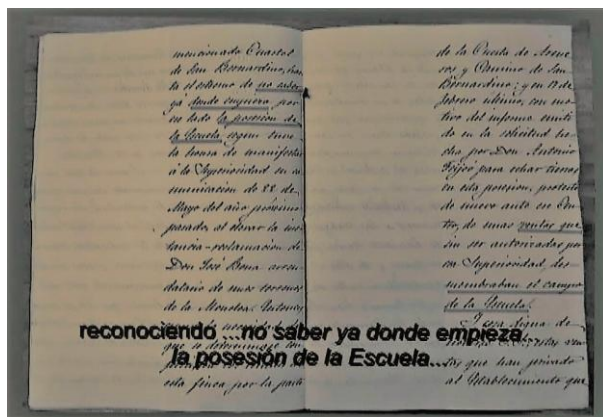 mencionado Cuartel
de San Bernardino, has
ta el estremo de no saber
ya donde empieza por
su lado la posesion de
la Escuela, segun tuve
la honra de manifestar
á la Superioridad en co
municacion de 28 de
Mayo del año próximo
pasado, al elevar la ins
tancia-reclamacion de
Don José Bona arren
datario de unos terrenos
de la Moncloa.
que se
esta finca por la parte
de la Cuesta de Arene
ros y Camino de San
Bernardino; y en 17 de
febrero último, con mo
tivo del informe emiti
do en la solicitud he
cha por Don Antonio
Feijóo para echar tierras
en esta posesion, protesté
de nuevo ante ese Cen
tro, de unas ventas que
sin ser autorizadas por
esa Superioridad, des
membraban el campo
de la Escuela.
Y cosa digna de
ven
tas que han privado
al Establecimiento que
reconociendo ...no saber ya donde empieza
la posesión de la Escuela...